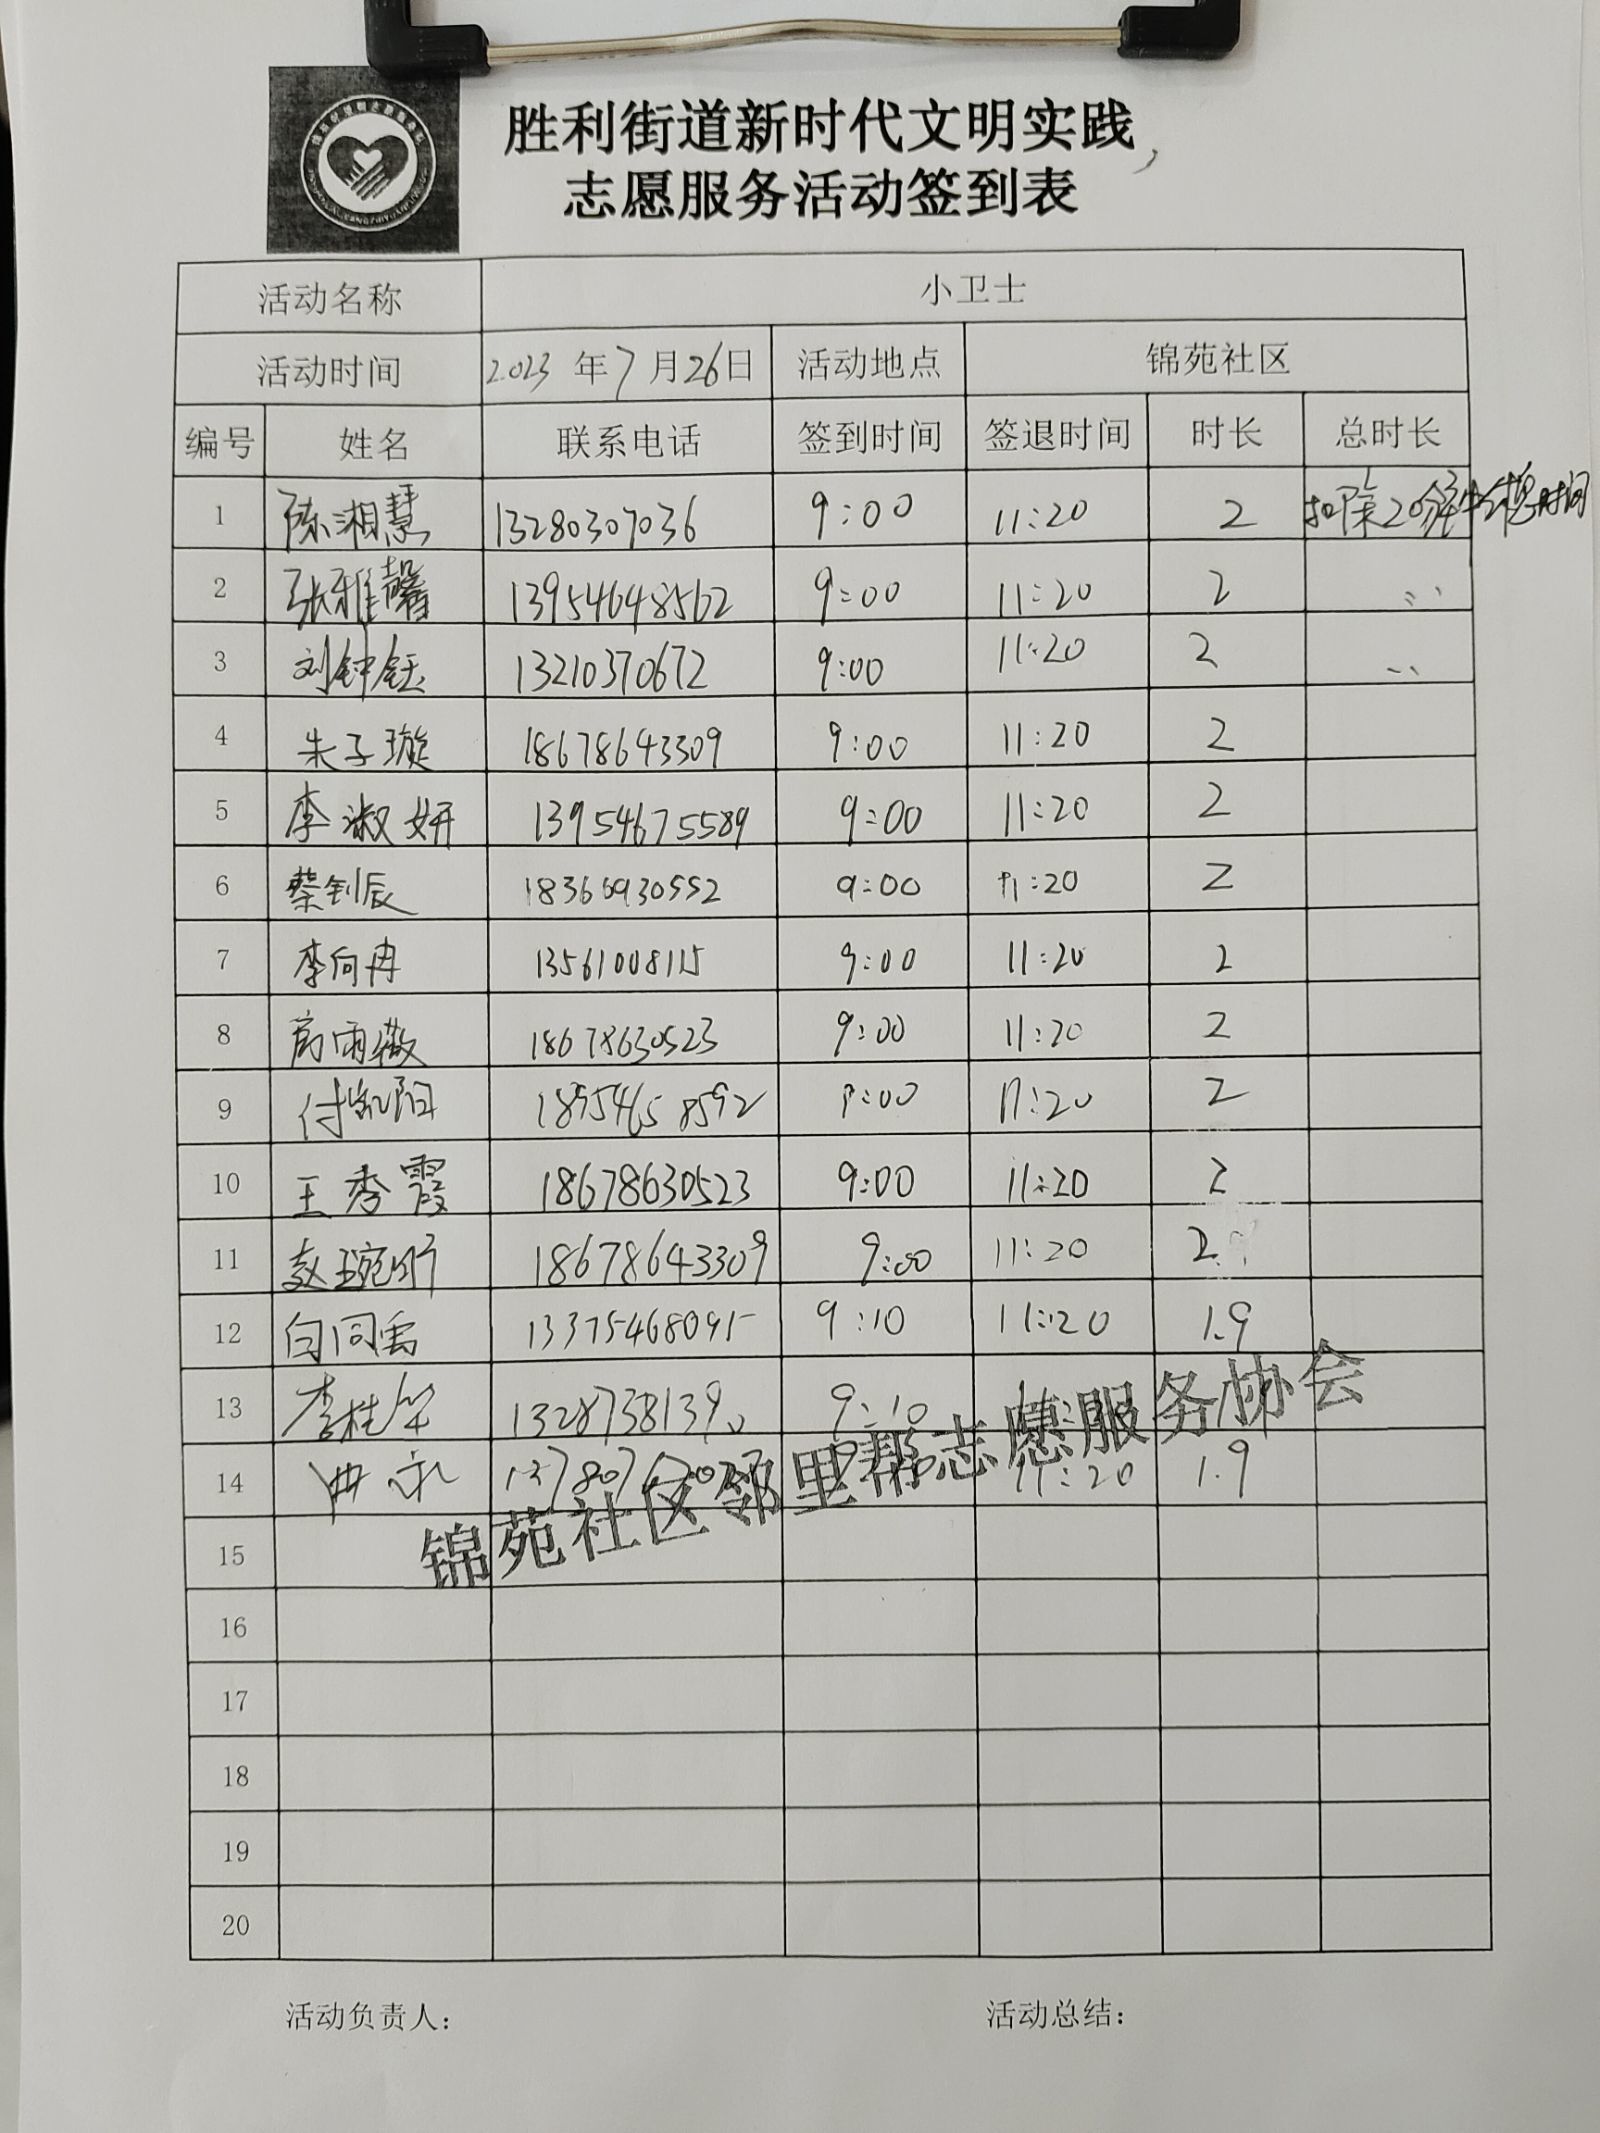 胜利街道新时代文明实践
志愿服务活动签到表
活动名称 小卫士
活动时间 2023 年 7 月 26 日 活动地点 锦苑社区
编号 姓名 联系电话 签到时间 签退时间 时长 总时长
1 陈湘慧 13280307036 9:00 11:20 2 扣除20分钟休息时间
2 张雅馨 13954648562 9:00 11:20 2
3 刘钟钰 13210370672 9:00 11:20 2
4 朱子璇 18678643309 9:00 11:20 2
5 李淑妍 13954675589 9:00 11:20 2
6 蔡钊辰 18366930552 9:00 11:20 2
7 李向冉 13561008115 9:00 11:20 2
8 雨薇 18678630523 9:00 11:20 2
9 付凯阳 18954658592 9:00 11:20 2
10 王秀霞 18678630523 9:00 11:20 2
11 赵琬昕 18678643309 9:00 11:20 2
12 白同禹 13375468095 9:10 11:20 1.9
13 李桂华 9:10
14 11:20 1.9
锦苑社区邻里帮志愿服务协会
15
16
17
18
19
20
活动负责人： 活动总结：